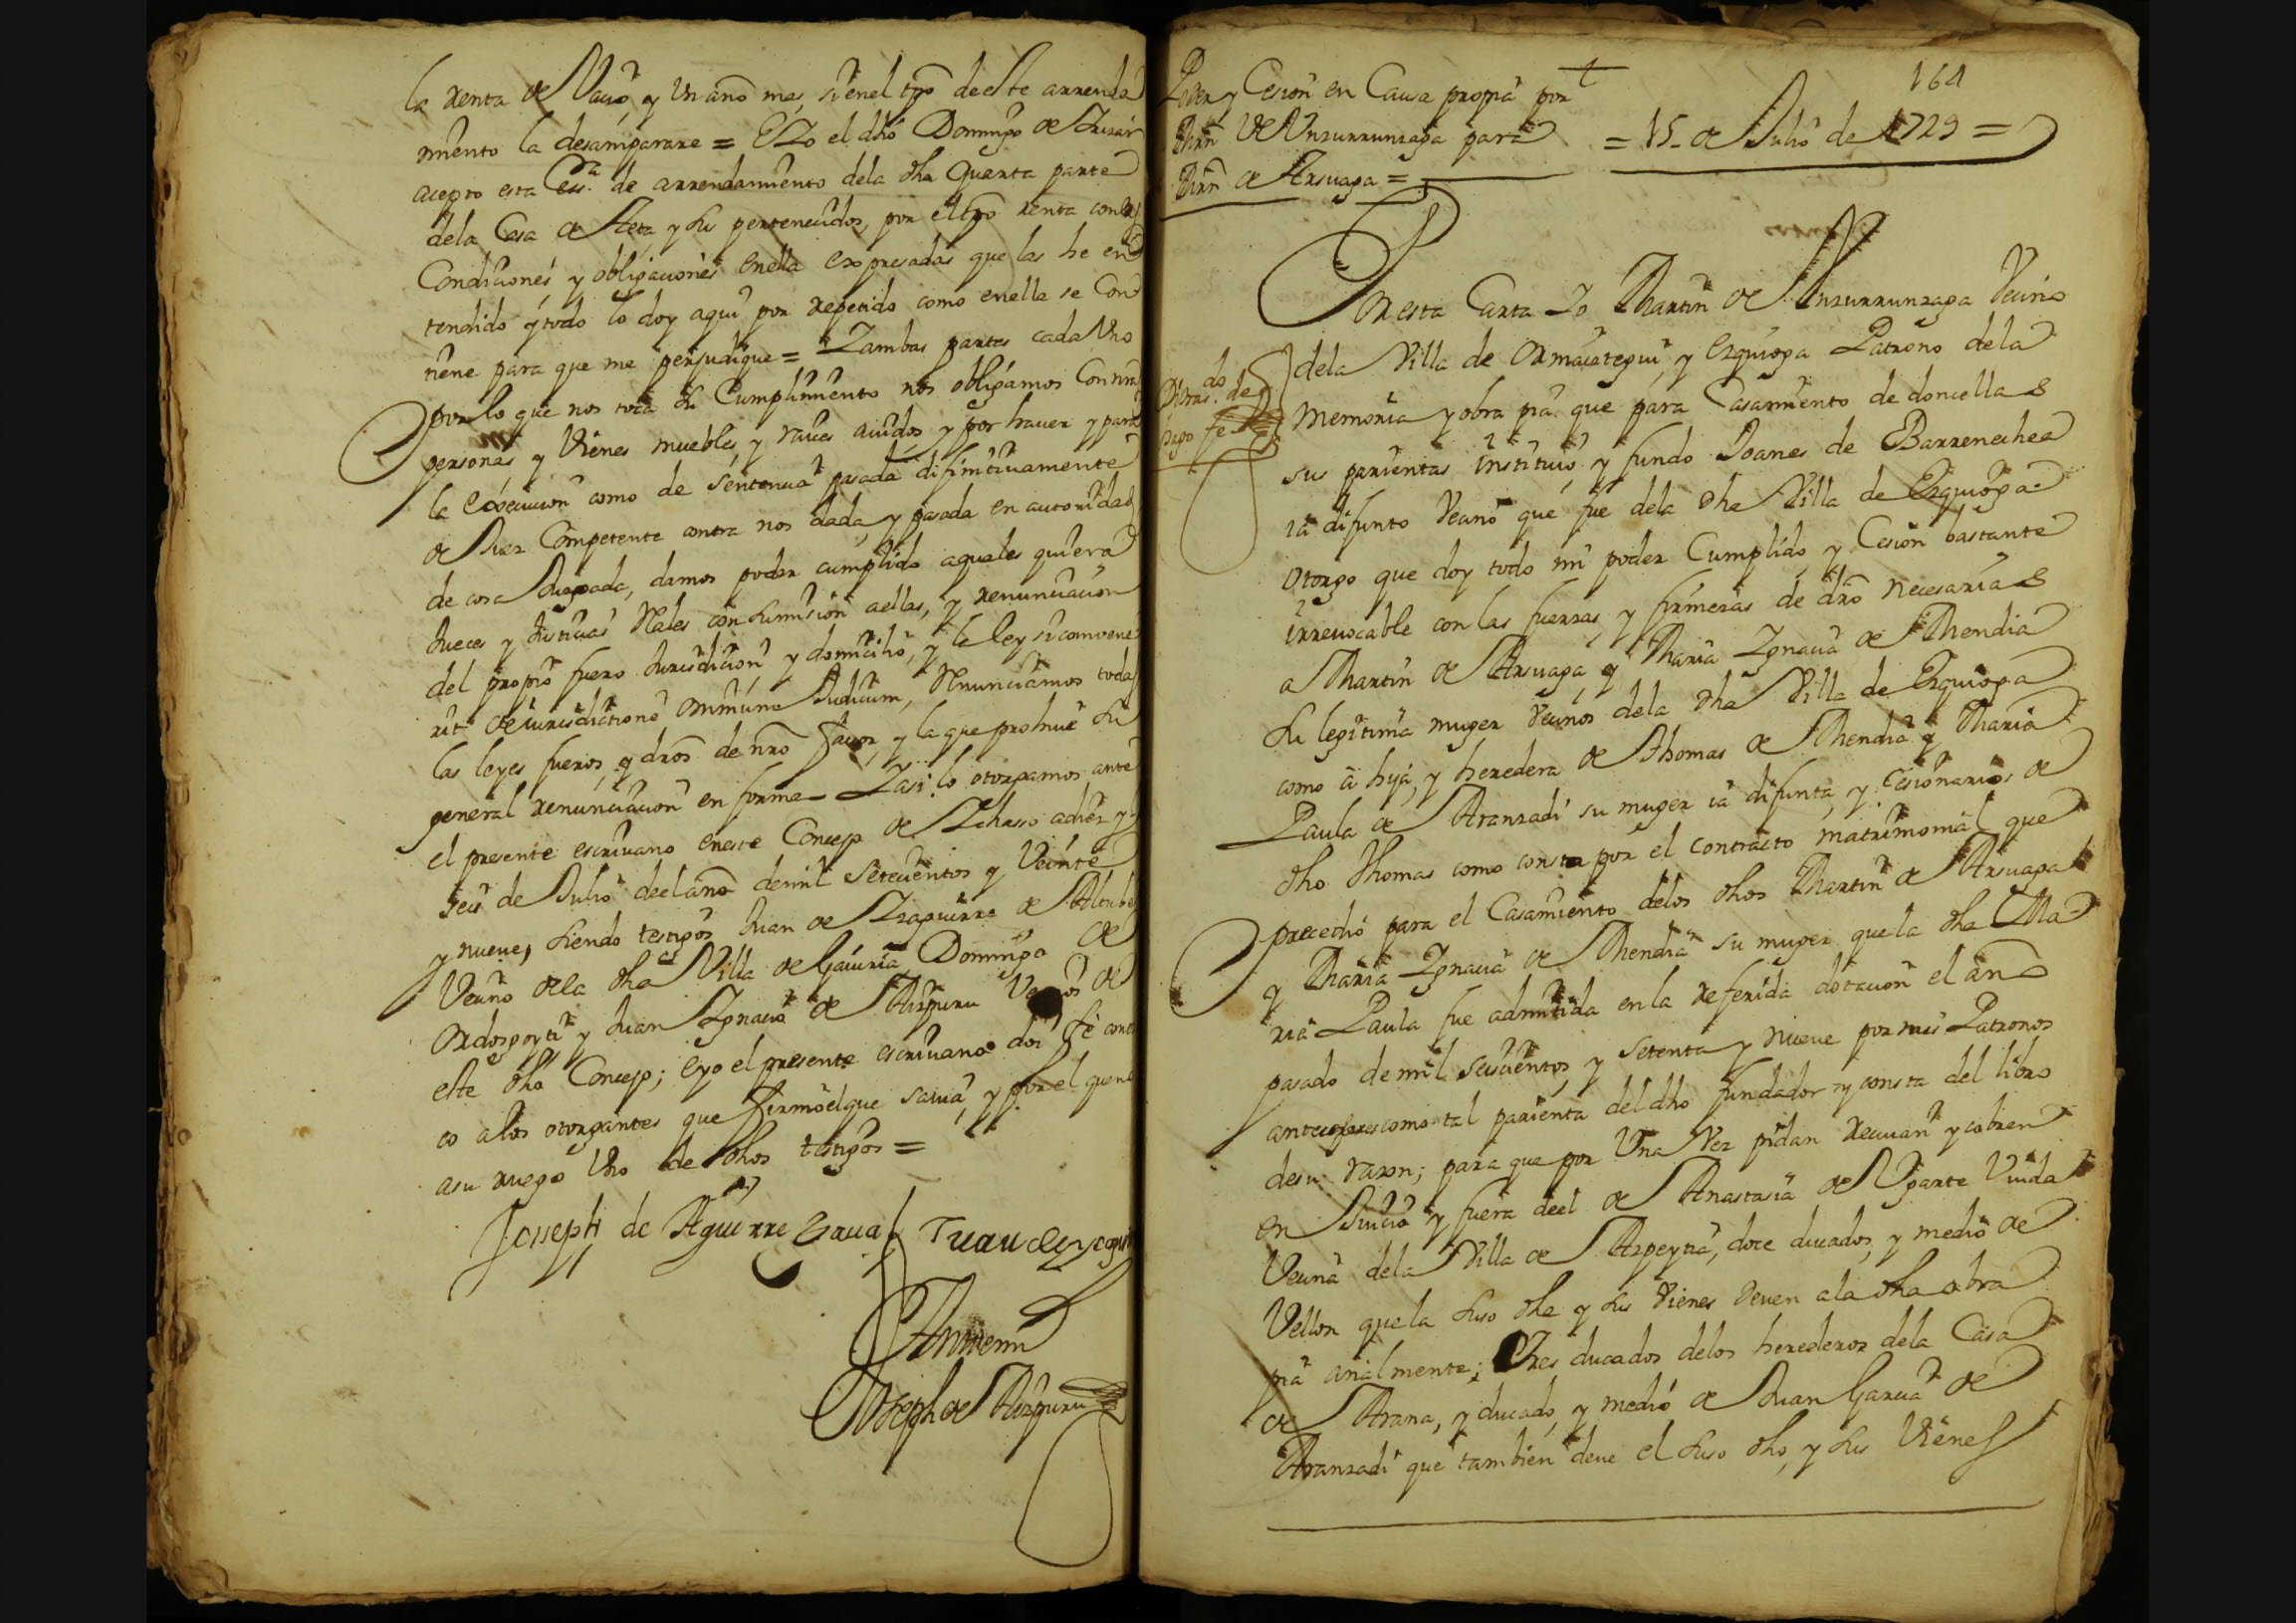 la renta de Vacio, y un año mas, si en el tpo de este arrenda
miento la desamparare = E Yo el dho Domingo de
acepto esta Ess.ra de arrendamiento dela dha quarta parte
dela Casa de y sus pertenecidos, por el tpo renta con las
Condiciones y obligaciones enella expresadas que las he en
tendido y todo lo doy aqui por repetido como enella se Con
tiene para que me perjudique = Y ambas partes cada Uno
por lo que nos toca su Cumplimiento nos obligamos Con nras
personas y Vienes muebles, y raices auidos y por hauer y para
la execucion como de sentencia pasada difinitiuamente
de Juez Competente contra nos dada, y pasada en autoridad
de cosa Juzgada, damos poder cumplido aquales quiera
Jueces y Justicias Reales con sumision aellas, y renunciacion
del propio fuero Jurisdicion, y domicilio, y la ley si convene
rit de iurisdictione omniuno Judicum, Renunciamos todas
las leyes fueros, y dros de nro fauor, y la que prohiue su
general renunciacion en forma = Y asi lo otorgamos ante
el presente escriuano en este Concejo de Ychasso adiez y
seis de Julio deel año demil setecientos y Veinte
y nueue, siendo testigos Juan de Yzaguirre de
Vecino dela dha Villa de Gauiria Domingo de
Ordosgoyti y Juan Ygnacio de Aizpuru Vecinos de
este dho Concejo; e yo el presente escriuano doi fe conoz
co alos otorgantes que firmo el que sauia, y por el que no
asu ruego Uno de dhos testigos =
Joseph de Aguirre Juan de
Ante mi
Joseph de Aizpuru
164
Poder y Cesion en Causa propia por
Mrn de Unzurrunzaga para = 15 de Julio de 1729 =
Mrn de Arsuaga =
Por esta Carta Yo Martin de Unzurrunzaga Vecino
dela Villa de Ormaiztegui, y Ezquioga Patrono dela
do de
hago fe
Memoria y obra pia que para Casamiento de doncellas
sus parientas instituio, y fundo Joanes de Barrenechea
ia difunto Vecino que fue dela dha Villa de Ezquioga
otorgo que doy todo mi poder Cumplido, y Cesion bastante
irreuocable con las fuerzas, y firmezas de dro necesarias
a Martin de Arsuaga y Maria Ygnacia de Mendia
su legitima muger Vecinos dela dha Villa de Ezquioga
como a hija, y heredera de Thomas de Mendia y Maria
Paula de Aranzadi su muger ia difunta, y Cesionarios de
dho Thomas como consta por el contracto matrimonial que
precedió para el Casamiento delos dhos Martin de Arsuaga
y Maria Ygnacia de Mendia su muger que la dha Ma
ria Paula fue admitida en la referida dotacion el año
pasado de mil seiscientos, y setenta y nueue por mis Patronos
antecesores como tal parienta del dho fundador y consta del libro
desu razon; para que por Una Vez pidan reciuan y cobren
en Juicio y fuera deel de Anastasia de Ugarte Viuda
Vecina dela Villa de Azpeytia, doce ducados, y medio de
Vellon que la suso dha y sus Vienes deuen ala dha obra
pia añalmente; Tres ducados delos herederos dela Casa
de Arana, y ducado, y medio de Juan Garcia de
Aranzadi que tambien deue el suso dho, y sus Vienes